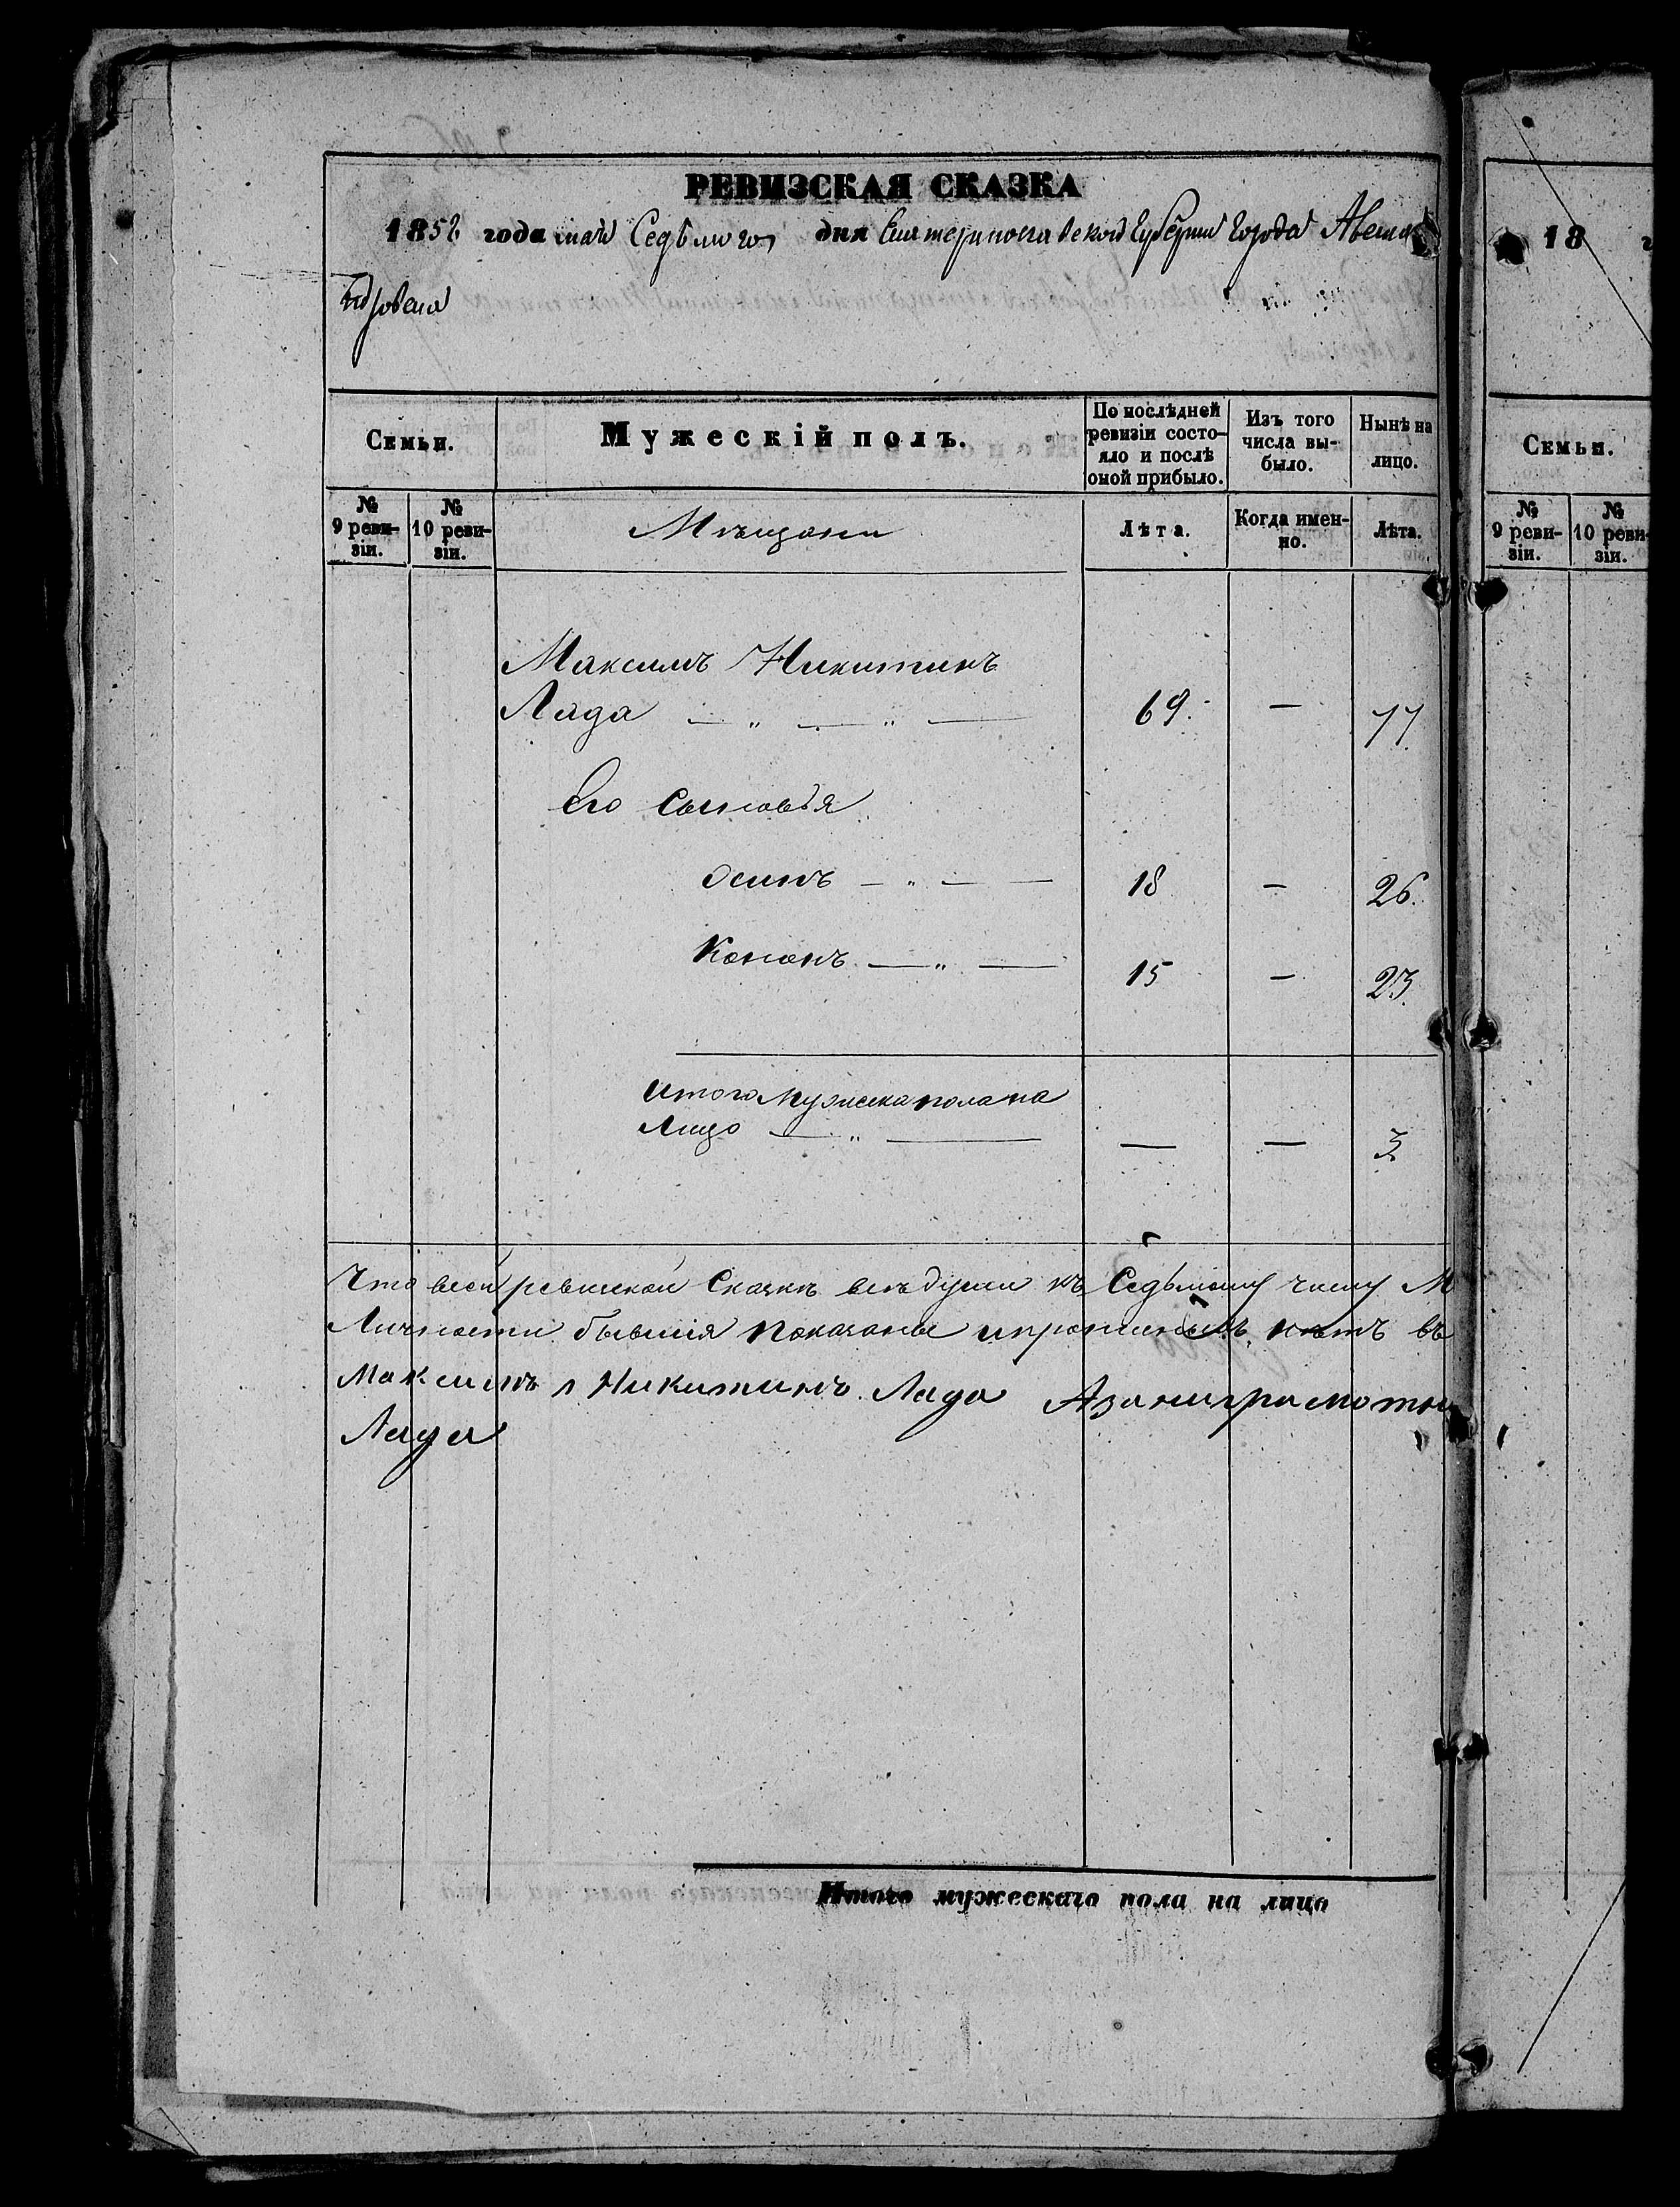 РЕВИЗСКАЯ СКАЗКА
1858 года мая Седьмого дня Екатеринославской Губернии города Алекса
ндровска
Семьи.
Мужескій полъ.
По послѣдней ревизіи состояло и послѣ оной прибыло.
Изъ того числа выбыло.
Нынѣ на лицо.
№ 9 ревизіи.
№ 10 ревизіи.
Мѣщани
Лѣта.
Когда именно.
Лѣта.
Максимъ Никитинъ
Лада — „ — „ — 69. — 77.
Его Сыновья
Осипъ — „ — — 18 — 26.
Кононъ — „ — 15 — 23.
Итого мужеска пола на
Лицо — „ — — — 3.
Что всей ревизкой Скаски всѣ души къ Седьмому числу М
Личности бывшія показаны и нѣтъ въ
Максимъ Никитинъ Лада А за
Лада
Итого мужескаго пола на лицо
18
Семьи.
№ 9 ревизіи.
№ 10 реви
зіи.